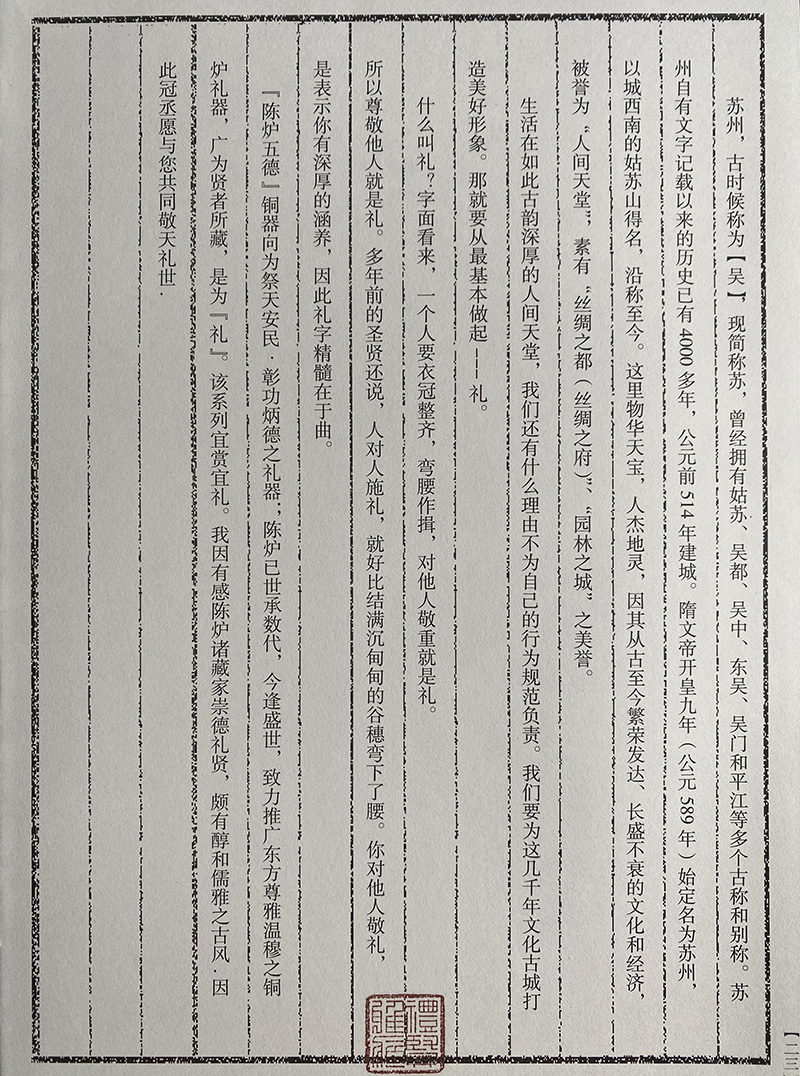 苏州，古时候称为【吴】，现简称苏，曾经拥有姑苏、吴都、吴中、东吴、吴门和平江等多个古称和别称。苏
州自有文字记载以来的历史已有4000多年，公元前514年建城。隋文帝开皇九年（公元589年）始定名为苏州，
以城西南的姑苏山得名，沿称至今。这里物华天宝，人杰地灵，因其从古至今繁荣发达、长盛不衰的文化和经济，
被誉为“人间天堂”，素有“丝绸之都（丝绸之府）”、“园林之城”之美誉。
生活在如此古韵深厚的人间天堂，我们还有什么理由不为自己的行为规范负责。我们要为这几千年文化古城打
造美好形象。那就要从最基本做起——礼。
什么叫礼？字面看来，一个人要衣冠整齐，弯腰作揖，对他人敬重就是礼。
所以尊敬他人就是礼。多年前的圣贤还说，人对人施礼，就好比结满沉甸甸的谷穗弯下了腰。你对他人敬礼，
是表示你有深厚的涵养，因此礼字精髓在于曲。
『陈炉五德』铜器向为祭天安民·彰功炳德之礼器；陈炉已世承数代，今逢盛世，致力推广东方尊雅温穆之铜
炉礼器，广为贤者所藏，是为『礼』。该系列宜赏宜礼。我因有感陈炉诸藏家崇德礼贤，颇有醇和儒雅之古风·因
此冠丞愿与您共同敬天礼世·
【二三